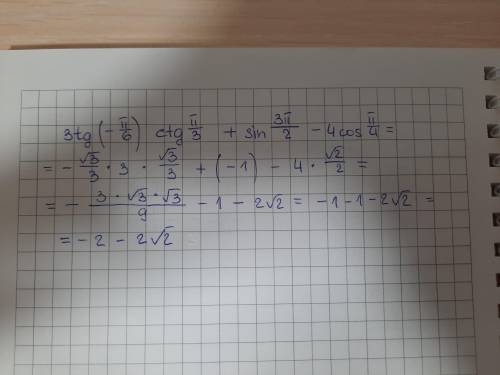 3tg(-π/6) ctg π/3 + sin 3π/2 - 4cos π/4 =
= - √3/3 · 3 · √3/3 + (-1) - 4 · √2/2 =
= - (3 · √3 · √3)/9 - 1 - 2√2 = -1 - 1 - 2√2 =
= -2 - 2√2